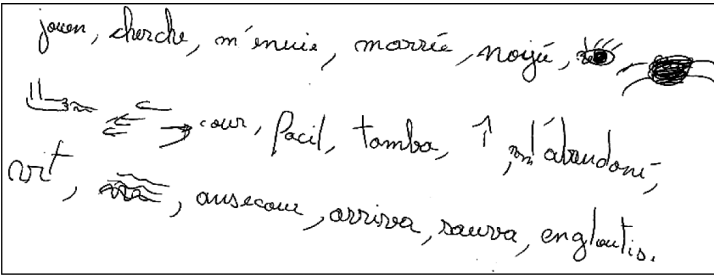 jouen, cherche, m'enuie, marrée, noyée,
cour, facil, tomba, m'abandoné,
vit, ausecour, arriva, sauva, engloutis.